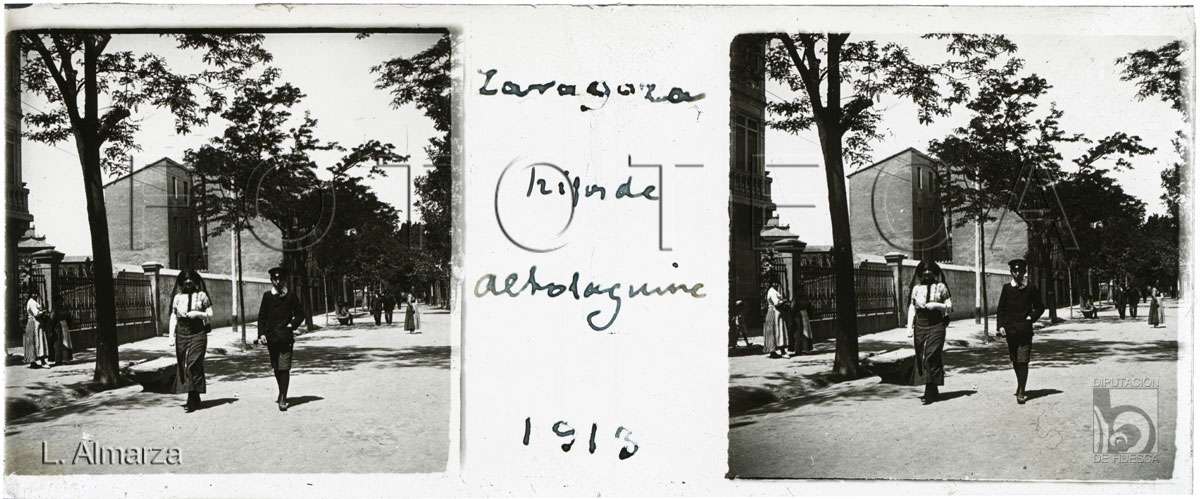 Zaragoza
hijos de
Altolaguirre
1913
FOTOTECA
L. Almarza
DIPUTACIÓN
DE HUESCA